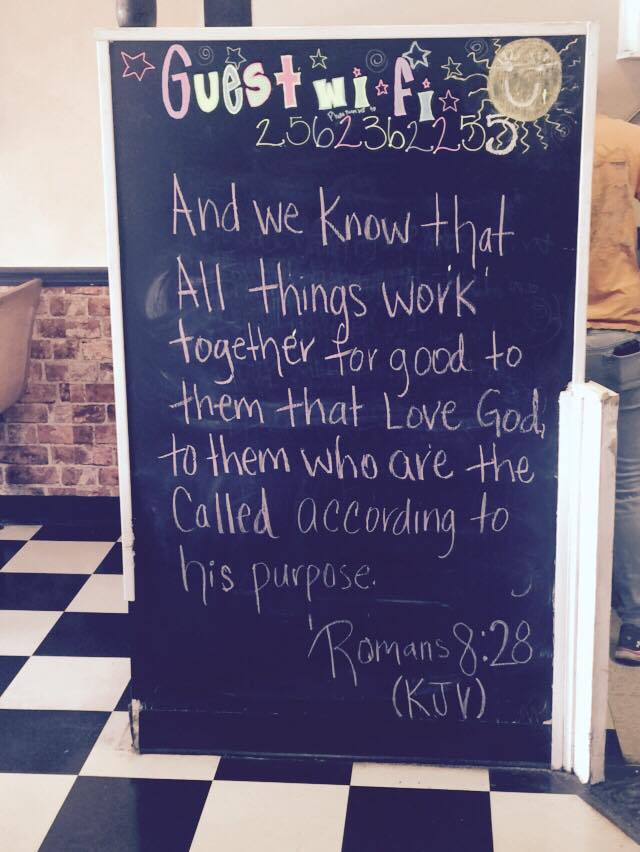 Guest wi-fi
2562362255
And we know that
All things work
together for good to
them that Love God,
to them who are the
Called according to
his purpose.
Romans 8:28
(KJV)